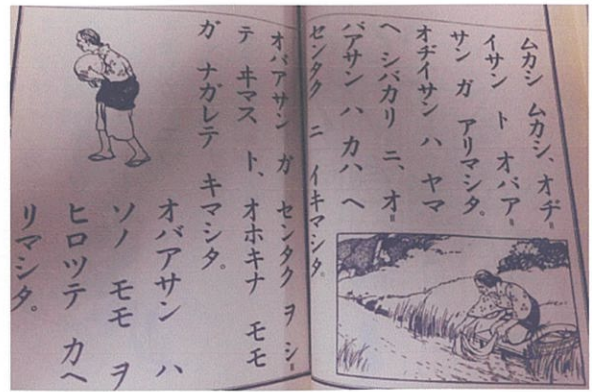 ムカシ ムカシ、オヂ=
イサン ト オバア=
サン ガ アリマシタ。
オヂイサン ハ ヤマ
ヘ シバカリ ニ、オ=
バアサン ハ カハ ヘ
センタク ニ イキマシタ。
オバアサン ガ センタク ヲ シ=
テ ヰマス ト、オホキナ モモ
ガ ナガレテ キマシタ。
オバアサン ハ
ソノ モモ ヲ
ヒロツテ カヘ
リマシタ。